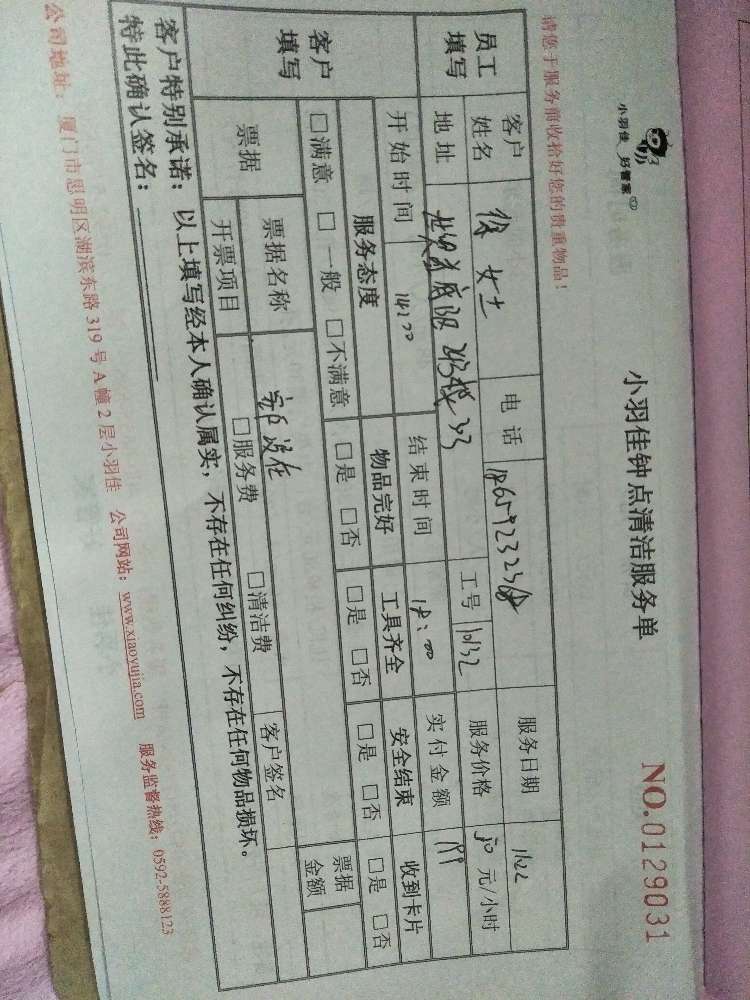 小羽佳 好管家
请您于服务前收拾好您的贵重物品！
小羽佳钟点清洁服务单
NO.0129031
员工填写 客户姓名 女士 电话 服务日期
地址 工号 10132 服务价格 50 元/小时
开始时间 14:00 结束时间 18:00 实付金额
客户填写 服务态度 物品完好 工具齐全 安全结束 收到卡片
□满意 □一般 □不满意 □是 □否 □是 □否 □是 □否 □是 □否
票据 票据名称 客户签名 票据金额
开票项目 □服务费 □清洁费
客户特别承诺：以上填写经本人确认属实，不存在任何纠纷，不存在任何物品损坏。
特此确认签名：
公司地址：厦门市思明区湖滨东路319号A幢2层小羽佳 公司网站：www.xiaoyujia.com 服务监督热线：0592-5888123